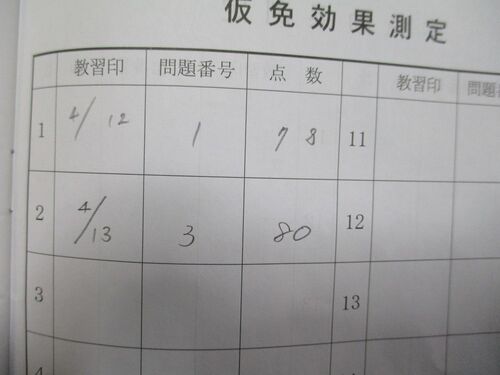 仮免効果測定
教習印 問題番号 点数 教習印
1 4/12 1 78 11
2 4/13 3 80 12
3 13